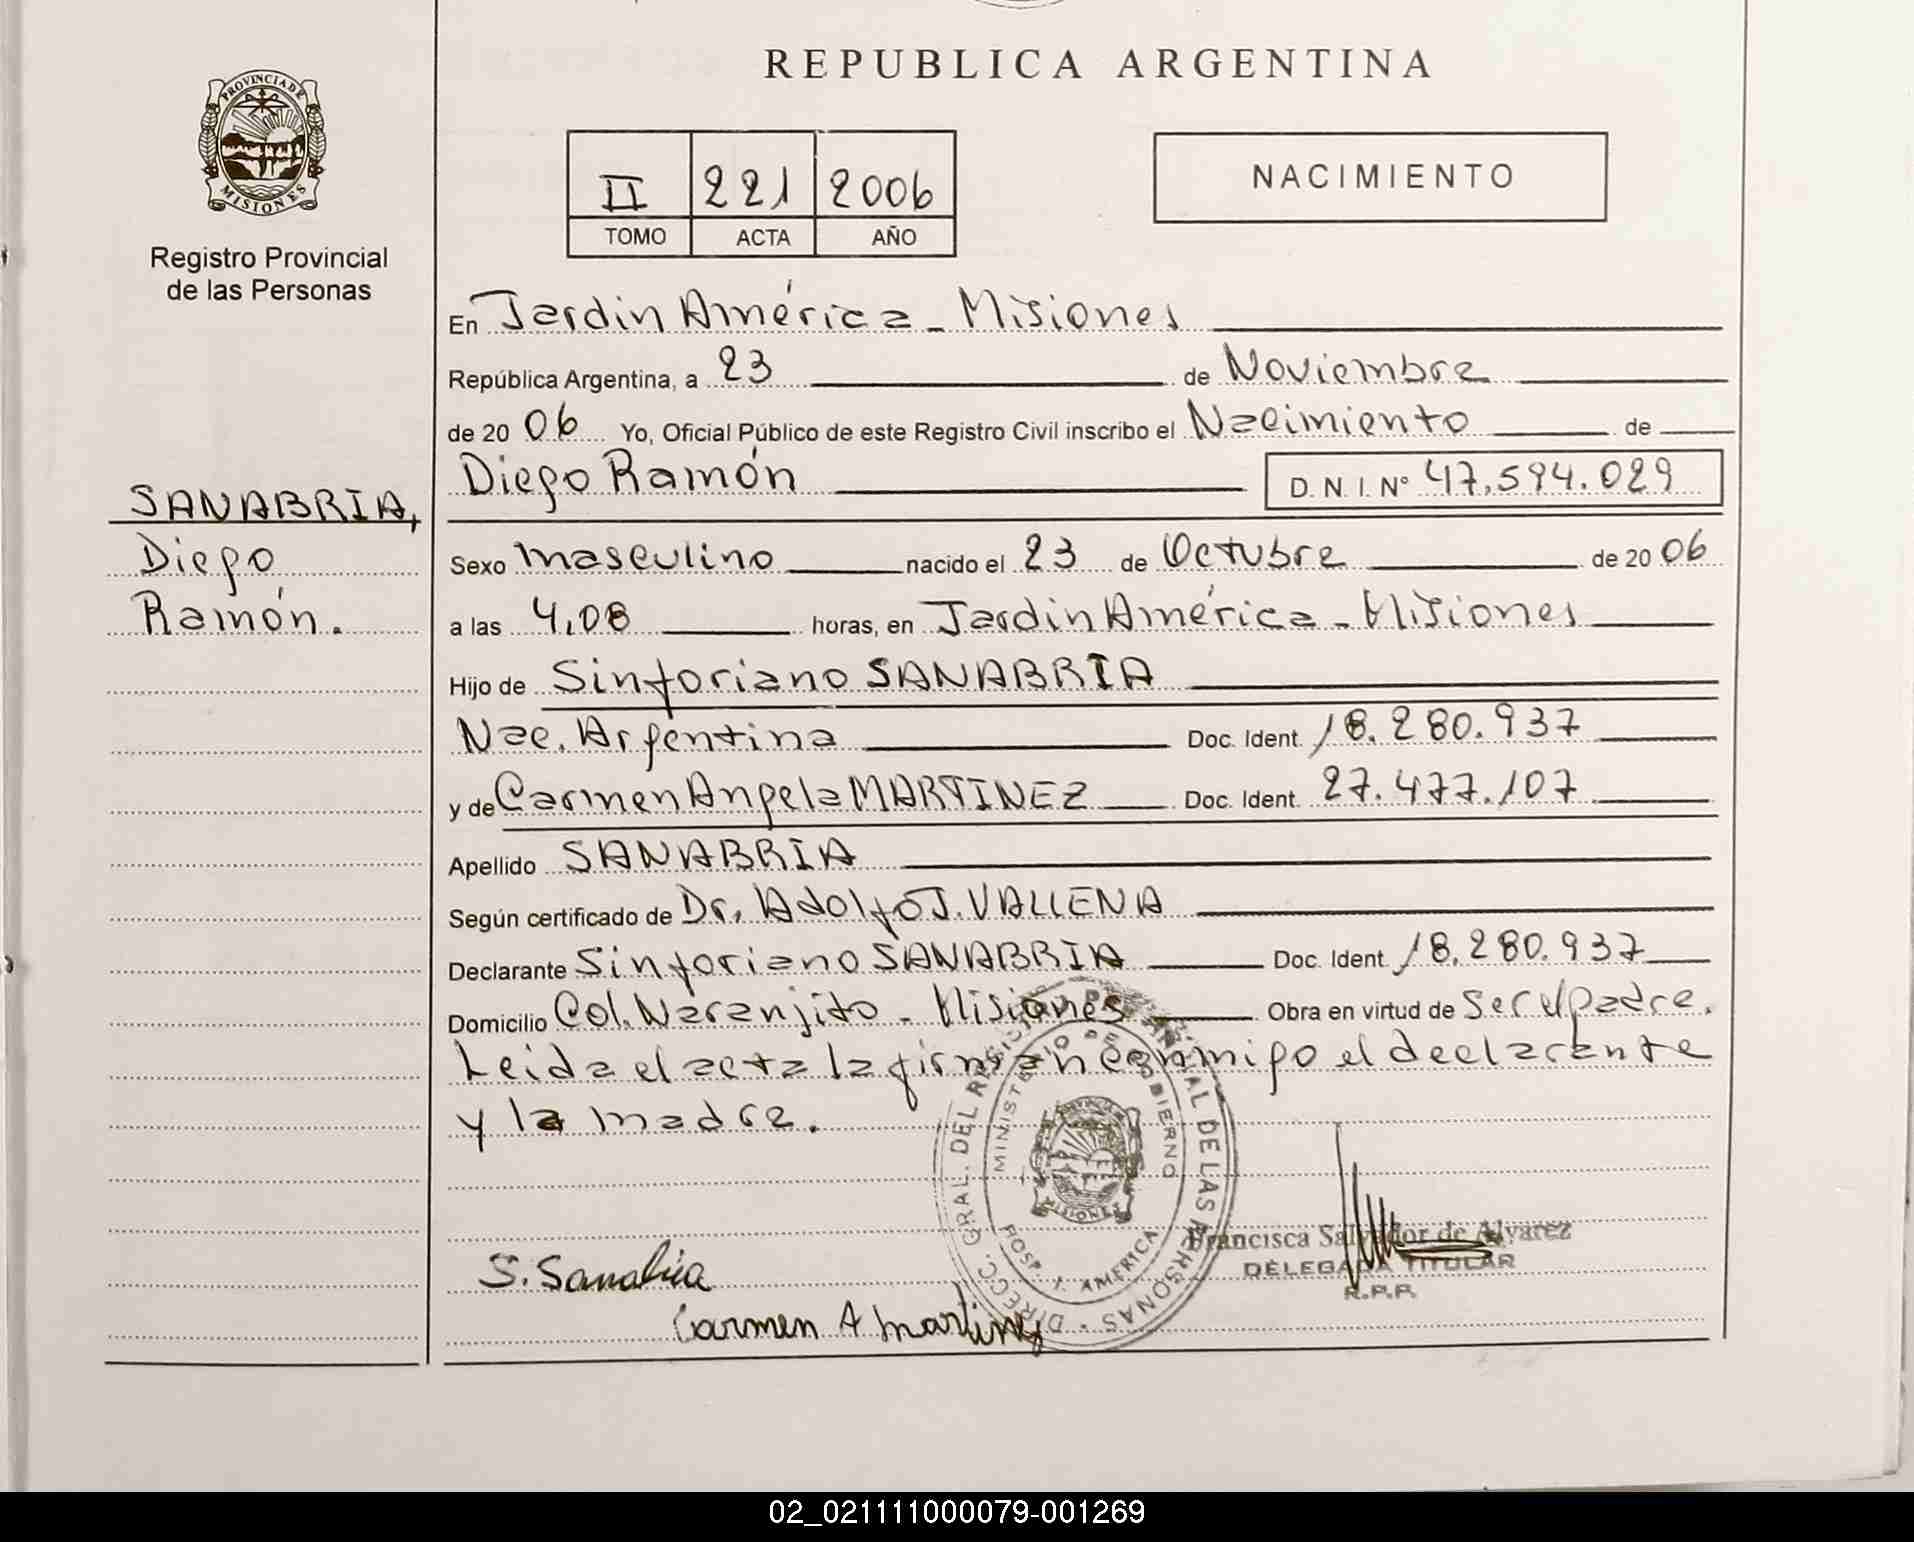 REPUBLICA ARGENTINA
PROVINCIA DE
MISIONES
Registro Provincial
de las Personas
II 221 2006
TOMO ACTA AÑO
NACIMIENTO
SANABRIA,
Diego
Ramón.
En Jardin América - Misiones
República Argentina, a 23 de Noviembre
de 2006 Yo, Oficial Público de este Registro Civil inscribo el Nacimiento de
Diego Ramón D.N.I. Nº 47.594.029
Sexo masculino nacido el 23 de Octubre de 2006
a las 4,08 horas, en Jardin América - Misiones
Hijo de Sinforiano SANABRIA
Nac. Argentina Doc. Ident. 18.280.937
y de Carmen Angela MARTINEZ Doc. Ident. 27.477.107
Apellido SANABRIA
Según certificado de Dr. Adolfo J. VALLENA
Declarante Sinforiano SANABRIA Doc. Ident. 18.280.937
Domicilio Col. Naranjito - Misiones Obra en virtud de ser el padre.
Leida el acta la firman conmigo el declarante
y la madre.
DIRECC. GRAL. DEL REGISTRO PROVINCIAL DE LAS PERSONAS
MINISTERIO DE GOBIERNO
MISIONES
HOSP. J. AMERICA
Francisca Salvador de Alvarez
DELEGADA TITULAR
R.P.P.
S. Sanabria
Carmen A Martinez
02_021111000079-001269